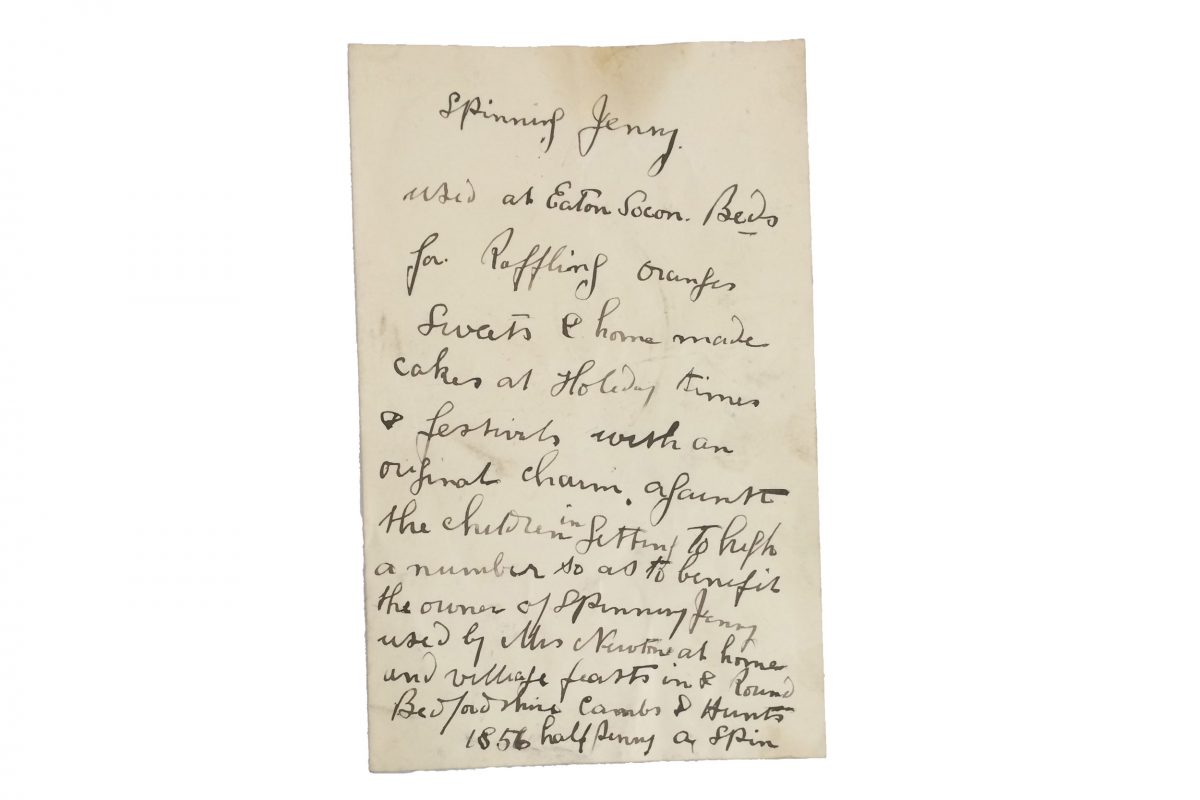 Spinning Jenny.
used at Eaton Socon. Beds
for Raffling oranges
Sweets & home made
cakes at Holiday times
& festivals with an
original charm. against
the children in getting to high
a number so as to benifit
the owner of Spinning Jenny
used by Mrs Newton at home
and village feasts in & Round
Bedfordshire Cambs & Hunts
1856 halfpenny a Spin